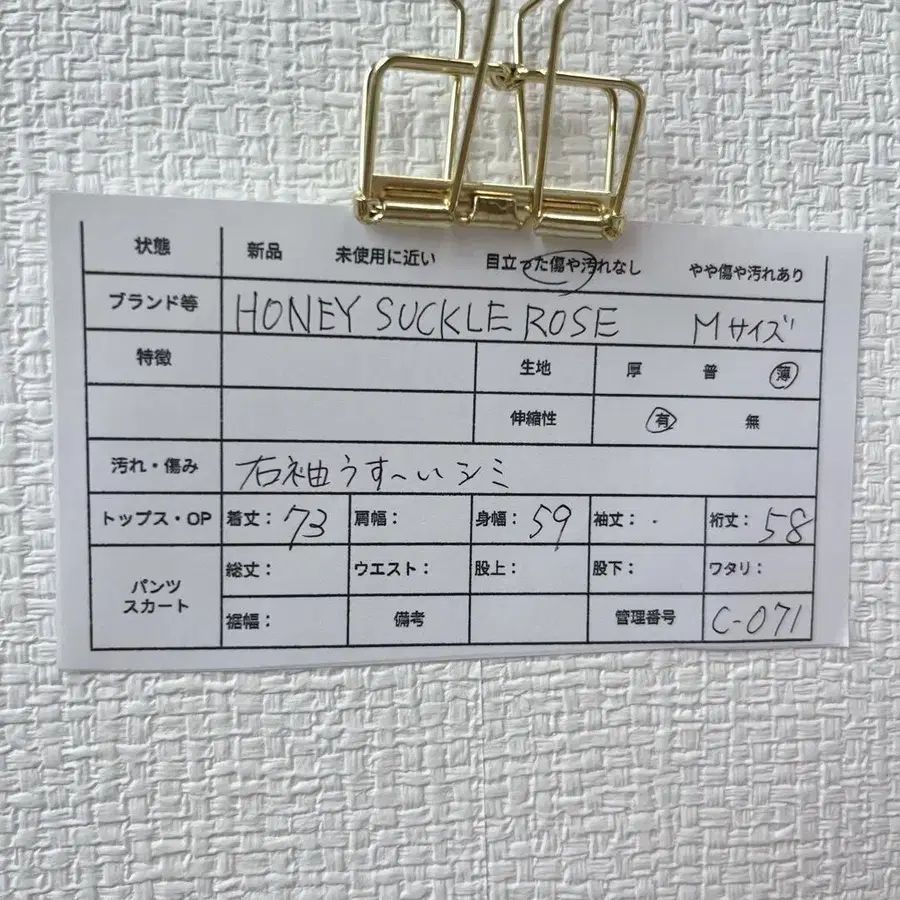 状態 新品 未使用に近い 目立った傷や汚れなし やや傷や汚れあり
ブランド等 HONEY SUCKLE ROSE Mサイズ
特徴 生地 厚 普 薄
伸縮性 有 無
汚れ・傷み 右袖うす〜いシミ
トップス・OP 着丈: 73 肩幅: 身幅: 59 袖丈: 裄丈: 58
パンツ
スカート
総丈: ウエスト: 股上: 股下: ワタリ:
裾幅: 備考 管理番号 C-071